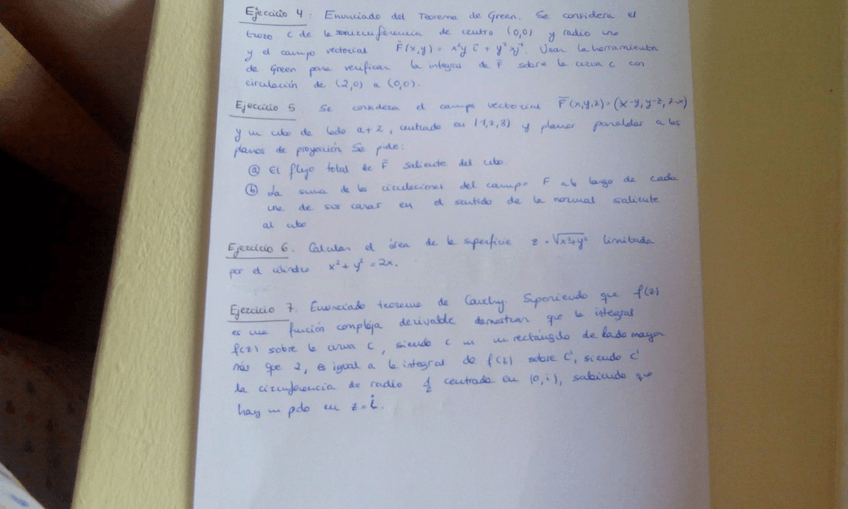 Ejercicio 4. Enunciado del Teorema de Green. Se considera el
trozo C de la semicircunferencia de centro (0,0) y radio uno
y el campo vectorial F(x,y) = x²y i + y³ j. Usar la herramienta
de Green para verificar la integral de F sobre la curva c con
circulación de (2,0) a (0,0).
Ejercicio 5 Se considera el campo vectorial F(x,y,z) = (x-y, y-z, z-x)
y un cubo de lado a+2, centrado en (1,2,3) y planos paralelos a los
planos de proyección Se pide:
(a) El flujo total de F saliente del cubo.
(b) La suma de las circulaciones del campo F a lo largo de cada
una de sus caras en el sentido de la normal saliente
al cubo
Ejercicio 6. Calcular el área de la superficie z = √x²+y² limitada
por el cilindro x² + y² = 2x.
Ejercicio 7. Enunciado teorema de Cauchy. Suponiendo que f(z)
es una función compleja derivable demostrar que la integral
f(z) sobre la curva C, siendo C un rectángulo de lado mayor
más que 2, es igual a la integral de f(z) sobre C', siendo C'
la circunferencia de radio 1/2 centrada en (0,i), sabiendo que
hay un polo en z = i.